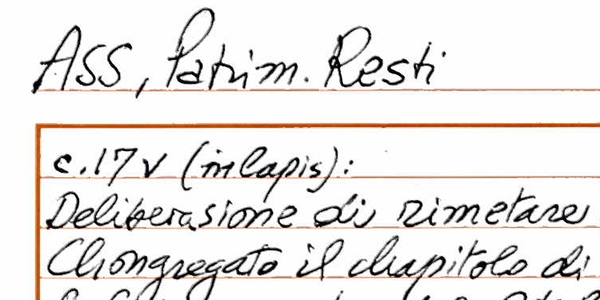 ASS, Patrim. Resti
c. 17 v (in lapis):
Deliberasione di rimetare
Chongregato il chapitolo di